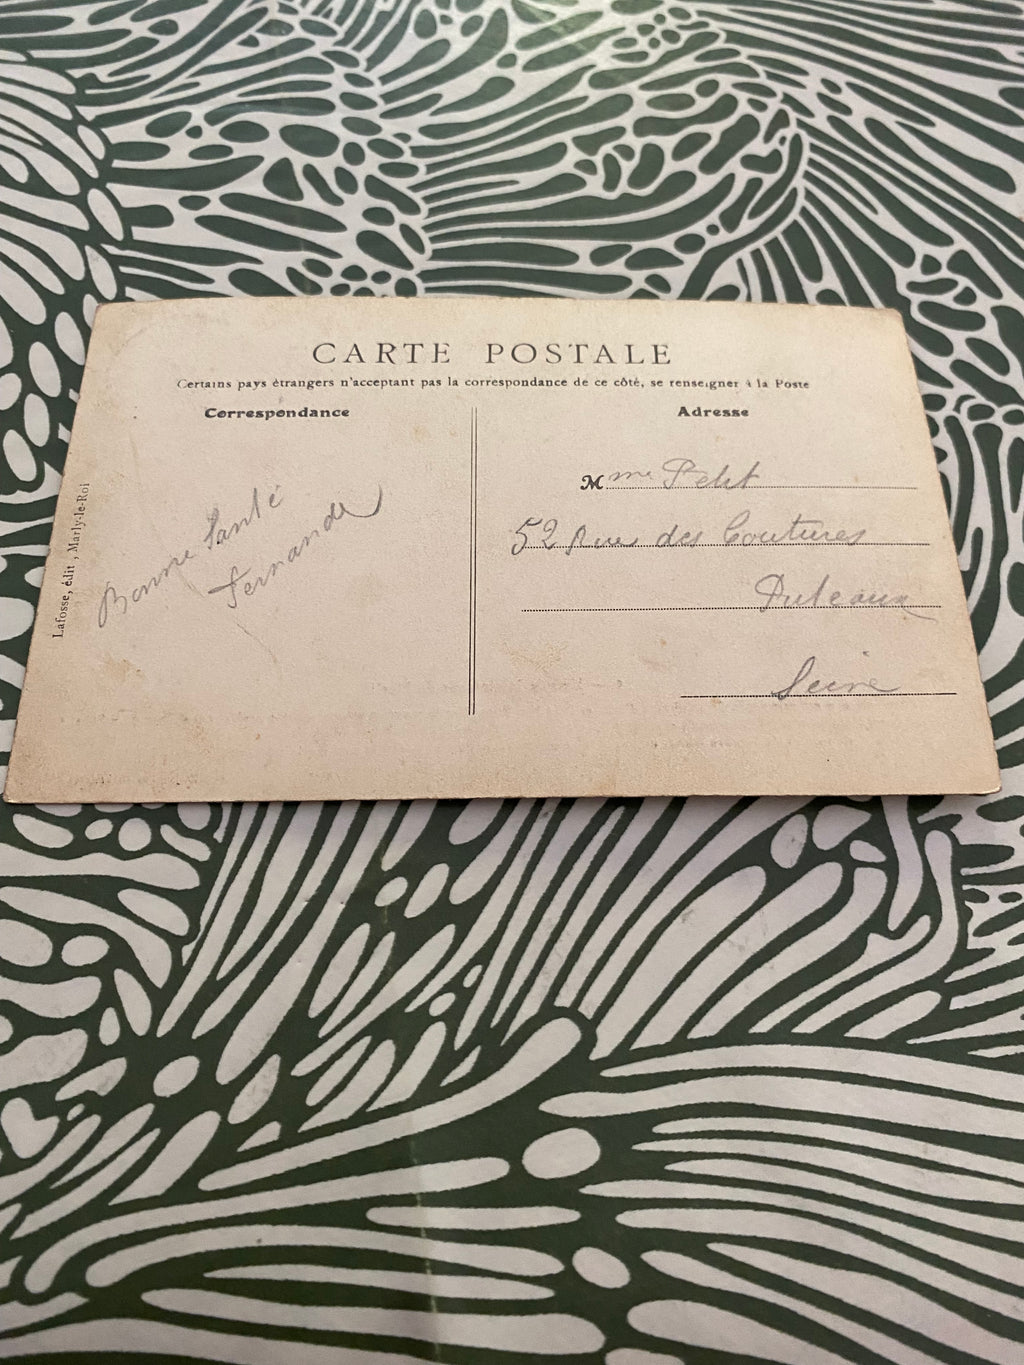 CARTE POSTALE
Certains pays étrangers n'acceptant pas la correspondance de ce côté, se renseigner à la Poste
Correspondance
Adresse
Lafosse, édit, Marly-le-Roi
Bonne Santé
Fernande
Mme Petit
52 Rue des Coutures
Puteaux
Seine